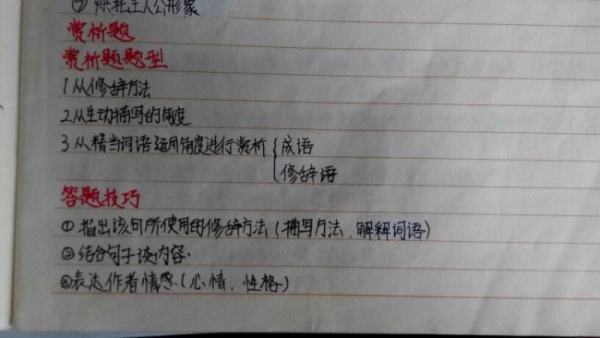 ② 烘托主人公形象
赏析题
赏析题题型
1 从修辞方法
2 从生动描写的角度
3 从精当词语运用角度进行赏析 { 成语
修辞语
答题技巧
① 指出该句所使用的修辞方法(描写方法、解释词语)
② 结合句子谈内容.
③ 表达作者情感.(心情、性格)